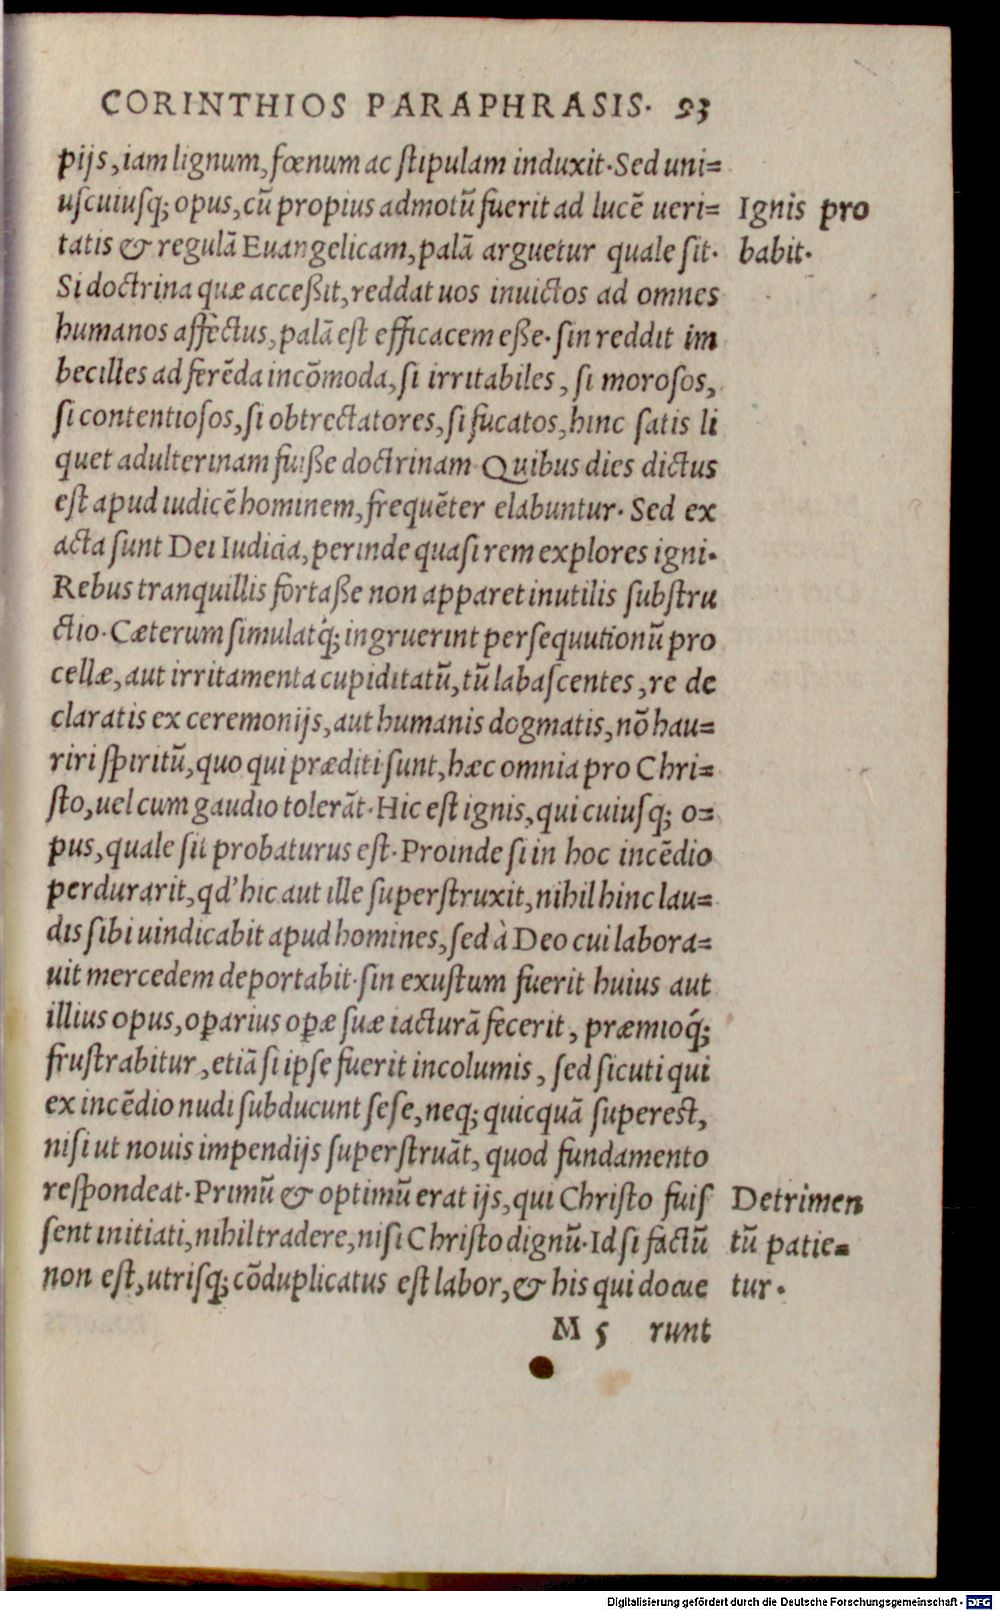 CORINTHIOS PARAPHRASIS. 93
pijs, iam lignum, fœnum ac stipulam induxit. Sed uni=
uscuiusq; opus, cū propius admotū fuerit ad lucē ueri=
Ignis pro
tatis & regulā Euangelicam, palā arguetur quale sit.
babit.
Si doctrina quæ acceßit, reddat uos inuictos ad omnes
humanos affectus, palā est efficacem eße. sin reddit im
becilles ad ferēda incōmoda, si irritabiles, si morosos,
si contentiosos, si obtrectatores, si fucatos, hinc satis li
quet adulterinam fuiße doctrinam. Quibus dies dictus
est apud iudicē hominem, frequēter elabuntur. Sed ex
acta sunt Dei Iudicia, perinde quasi rem explores igni.
Rebus tranquillis fortaße non apparet inutilis substru
ctio. Cæterum simulatq́; ingruerint persequutionū pro
cellæ, aut irritamenta cupiditatū, tū labascentes, re de
claratis ex ceremonijs, aut humanis dogmatis, nō hau=
riri spiritū, quo qui præditi sunt, hæc omnia pro Chri=
sto, uel cum gaudio tolerāt. Hic est ignis, qui cuiusq; o=
pus, quale sit probaturus est. Proinde si in hoc incēdio
perdurarit, qd' hic aut ille superstruxit, nihil hinc lau=
dis sibi uindicabit apud homines, sed à Deo cui labora=
uit mercedem deportabit. sin exustum fuerit huius aut
illius opus, oꝑarius oꝑæ suæ iacturā fecerit, præmioq́;
frustrabitur, etiā si ipse fuerit incolumis, sed sicuti qui
ex incēdio nudi subducunt sese, neq; quicquā superest,
nisi ut nouis impendijs superstruāt, quod fundamento
respondeat. Primū & optimū erat ijs, qui Christo fuis
Detrimen
sent initiati, nihil tradere, nisi Christo dignū. Id si factū
tū patie=
non est, utrisq; cōduplicatus est labor, & his qui docue
tur.
M 5 runt
Digitalisierung gefördert durch die Deutsche Forschungsgemeinschaft - DFG